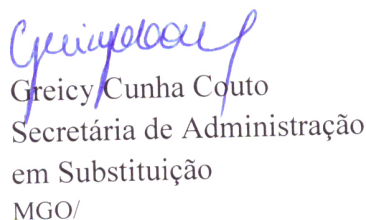 Greicy Cunha Couto
Secretária de Administração
em Substituição
MGO/